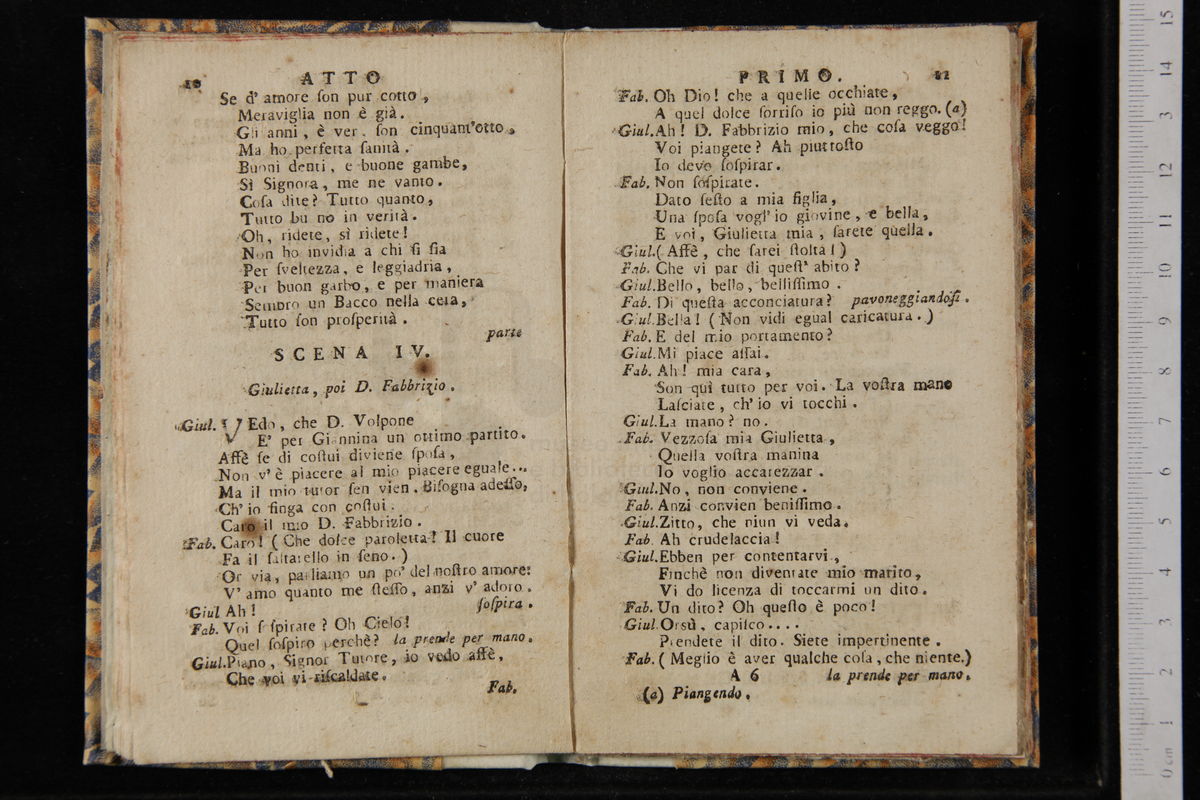 10 ATTO
Se d' amore ſon pur cotto,
Meraviglia non è già.
Gli anni, è ver. ſon cinquant'otto,
Ma ho perfetta ſanità.
Buoni denti, e buone gambe,
Sì Signora, me ne vanto.
Coſa dite? Tutto quanto,
Tutto bu no in verità.
Oh, ridete, sì ridete!
Non ho invidia a chi ſi ſia
Per ſveltezza, e leggiadria,
Per buon garbo, e per maniera
Sembro un Bacco nella cera,
Tutto ſon proſperità.
parte
SCENA IV.
Giulietta, poi D. Fabbrizio.
Giul. VEdo, che D. Volpone
E' per Giannina un ottimo partito.
Affè ſe di coſtui diviene ſpoſa,
Non v' è piacere al mio piacere eguale...
Ma il mio tutor ſen vien. Biſogna adeſſo,
Ch' io finga con coſtui.
Caro il mio D. Fabbrizio.
Fab. Caro! (Che dolce paroletta! Il cuore
Fa il ſaltarello in ſeno.)
Or via, parliamo un po' del noſtro amore:
V' amo quanto me ſteſſo, anzi v' adoro.
Giul Ah! ſoſpira.
Fab. Voi ſ ſpirate? Oh Cielo!
Quel ſoſpiro perchè? la prende per mano.
Giul. Piano, Signor Tutore, io vedo affè,
Che voi vi riſcaldate.
Fab.
PRIMO. 11
Fab. Oh Dio! che a quelle occhiate,
A quel dolce ſorriſo io più non reggo. (a)
Giul. Ah! D. Fabbrizio mio, che coſa veggo!
Voi piangete? Ah piuttoſto
Io devo ſoſpirar.
Fab. Non ſoſpirate.
Dato ſeſto a mia figlia,
Una ſpoſa vogl' io giovine, e bella,
E voi, Giulietta mia, ſarete quella.
Giul. (Affè, che ſarei ſtolta!)
Fab. Che vi par di queſt' abito?
Giul. Bello, bello, belliſſimo.
Fab. Di queſta acconciatura? pavoneggiandoſi.
Giul. Bella! (Non vidi egual caricatura.)
Fab. E del mio portamento?
Giul. Mi piace aſſai.
Fab. Ah! mia cara,
Son quì tutto per voi. La voſtra mano
Laſciate, ch' io vi tocchi.
Giul. La mano? no.
Fab. Vezzoſa mia Giulietta,
Quella voſtra manina
Io voglio accarezzar.
Giul. No, non conviene.
Fab. Anzi convien beniſſimo.
Giul. Zitto, che niun vi veda.
Fab. Ah crudelaccia!
Giul. Ebben per contentarvi,
Finchè non diventate mio marito,
Vi do licenza di toccarmi un dito.
Fab. Un dito? Oh queſto è poco!
Giul. Orsù, capiſco....
Prendete il dito. Siete impertinente.
Fab. (Meglio è aver qualche coſa, che niente.)
A 6 la prende per mano.
(a) Piangendo.